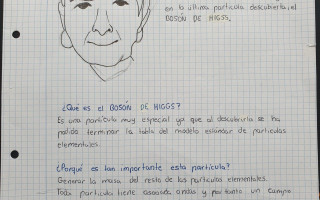 en la última partícula descubierta, el
BOSÓN DE HIGGS.
¿Qué es el BOSÓN DE HIGGS?
Es una partícula muy especial ya que al descubrirla se ha
podido terminar la tabla del modelo estándar de partículas
elementales.
¿Porqué es tan importante esta partícula?
Generar la masa del resto de las partículas elementales.
Toda partícula tiene asociada onda y por tanto un campo